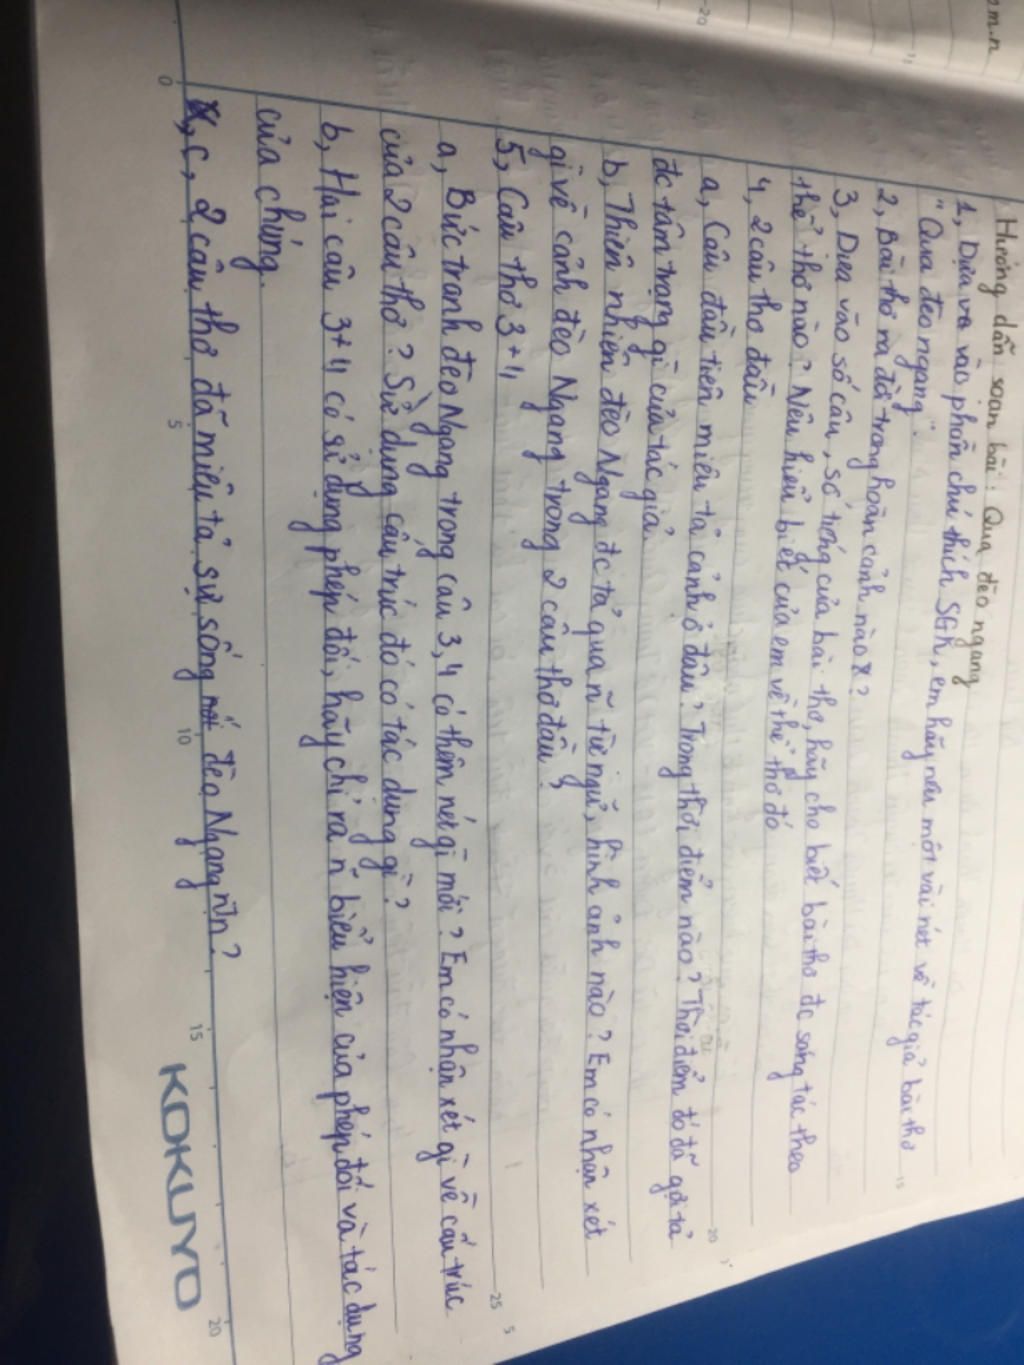 m.n
Hướng dẫn soạn bài: Qua đèo ngang
1, Dựa vào phần chú thích SGK, em hãy nêu một vài nét về tác giả bài thơ
"Qua đèo ngang".
2, Bài thơ ra đời trong hoàn cảnh nào?
3, Dựa vào số câu, số tiếng của bài thơ, hãy cho biết bài thơ đc sáng tác theo
thể thơ nào? Nêu hiểu biết của em về thể thơ đó
4, 2 câu thơ đầu
a, Câu đầu tiên miêu tả cảnh ở đâu? Trong thời điểm nào? Thời điểm đó đã gợi tả
đc tâm trạng gì của tác giả.
b, Thiên nhiên đèo Ngang đc tả qua ~n từ ngữ, hình ảnh nào? Em có nhận xét
gì về cảnh đèo Ngang trong 2 câu thơ đầu?
5, Câu thơ 3+4
a, Bức tranh đèo Ngang trong câu 3,4 có thêm nét gì mới? Em có nhận xét gì về cấu trúc
của 2 câu thơ? Sử dụng cấu trúc đó có tác dụng gì?
b, Hai câu 3+4 có sử dụng phép đối, hãy chỉ ra ~n biểu hiện của phép đối và tác dụng
của chúng.
c, 2 câu thơ đã miêu tả sự sống nơi đèo Ngang ntn?
KOKUYO